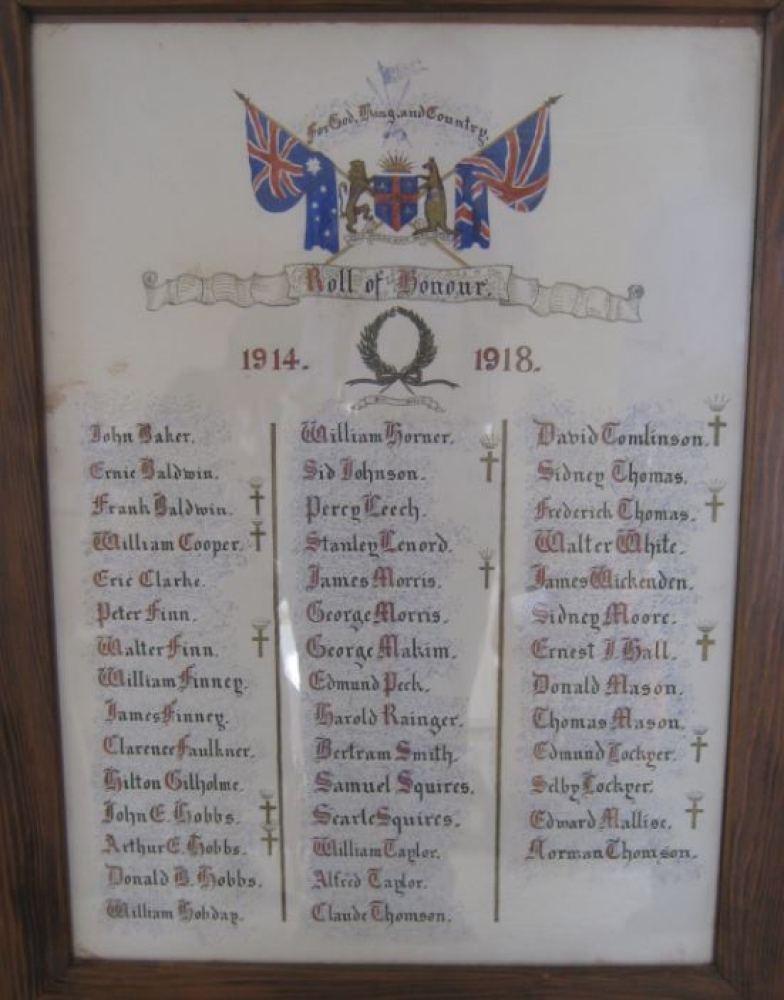 For God, King, and Country.
Roll of Honour.
1914. 1918.
John Baker.
Ernie Baldwin.
Frank Baldwin.
William Cooper.
Eric Clarke.
Peter Finn.
Walter Finn.
William Finney.
James Finney.
Clarence Faulkner.
Hilton Gilholme.
John E. Hobbs.
Arthur E. Hobbs.
Donald B. Hobbs.
William Hobday.
William Horner.
Sid Johnson.
Percy Leech.
Stanley Lenord.
James Morris.
George Morris.
George Makim.
Edmund Peck.
Harold Rainger.
Bertram Smith.
Samuel Squires.
Searle Squires.
William Taylor.
Alfred Taylor.
Claude Thomson.
David Tomlinson.
Sidney Thomas.
Frederick Thomas.
Walter White.
James Wickenden.
Sidney Moore.
Ernest J. Hall.
Donald Mason.
Thomas Mason.
Edmund Lockyer.
Selby Lockyer.
Edward Mallise.
Norman Thomson.